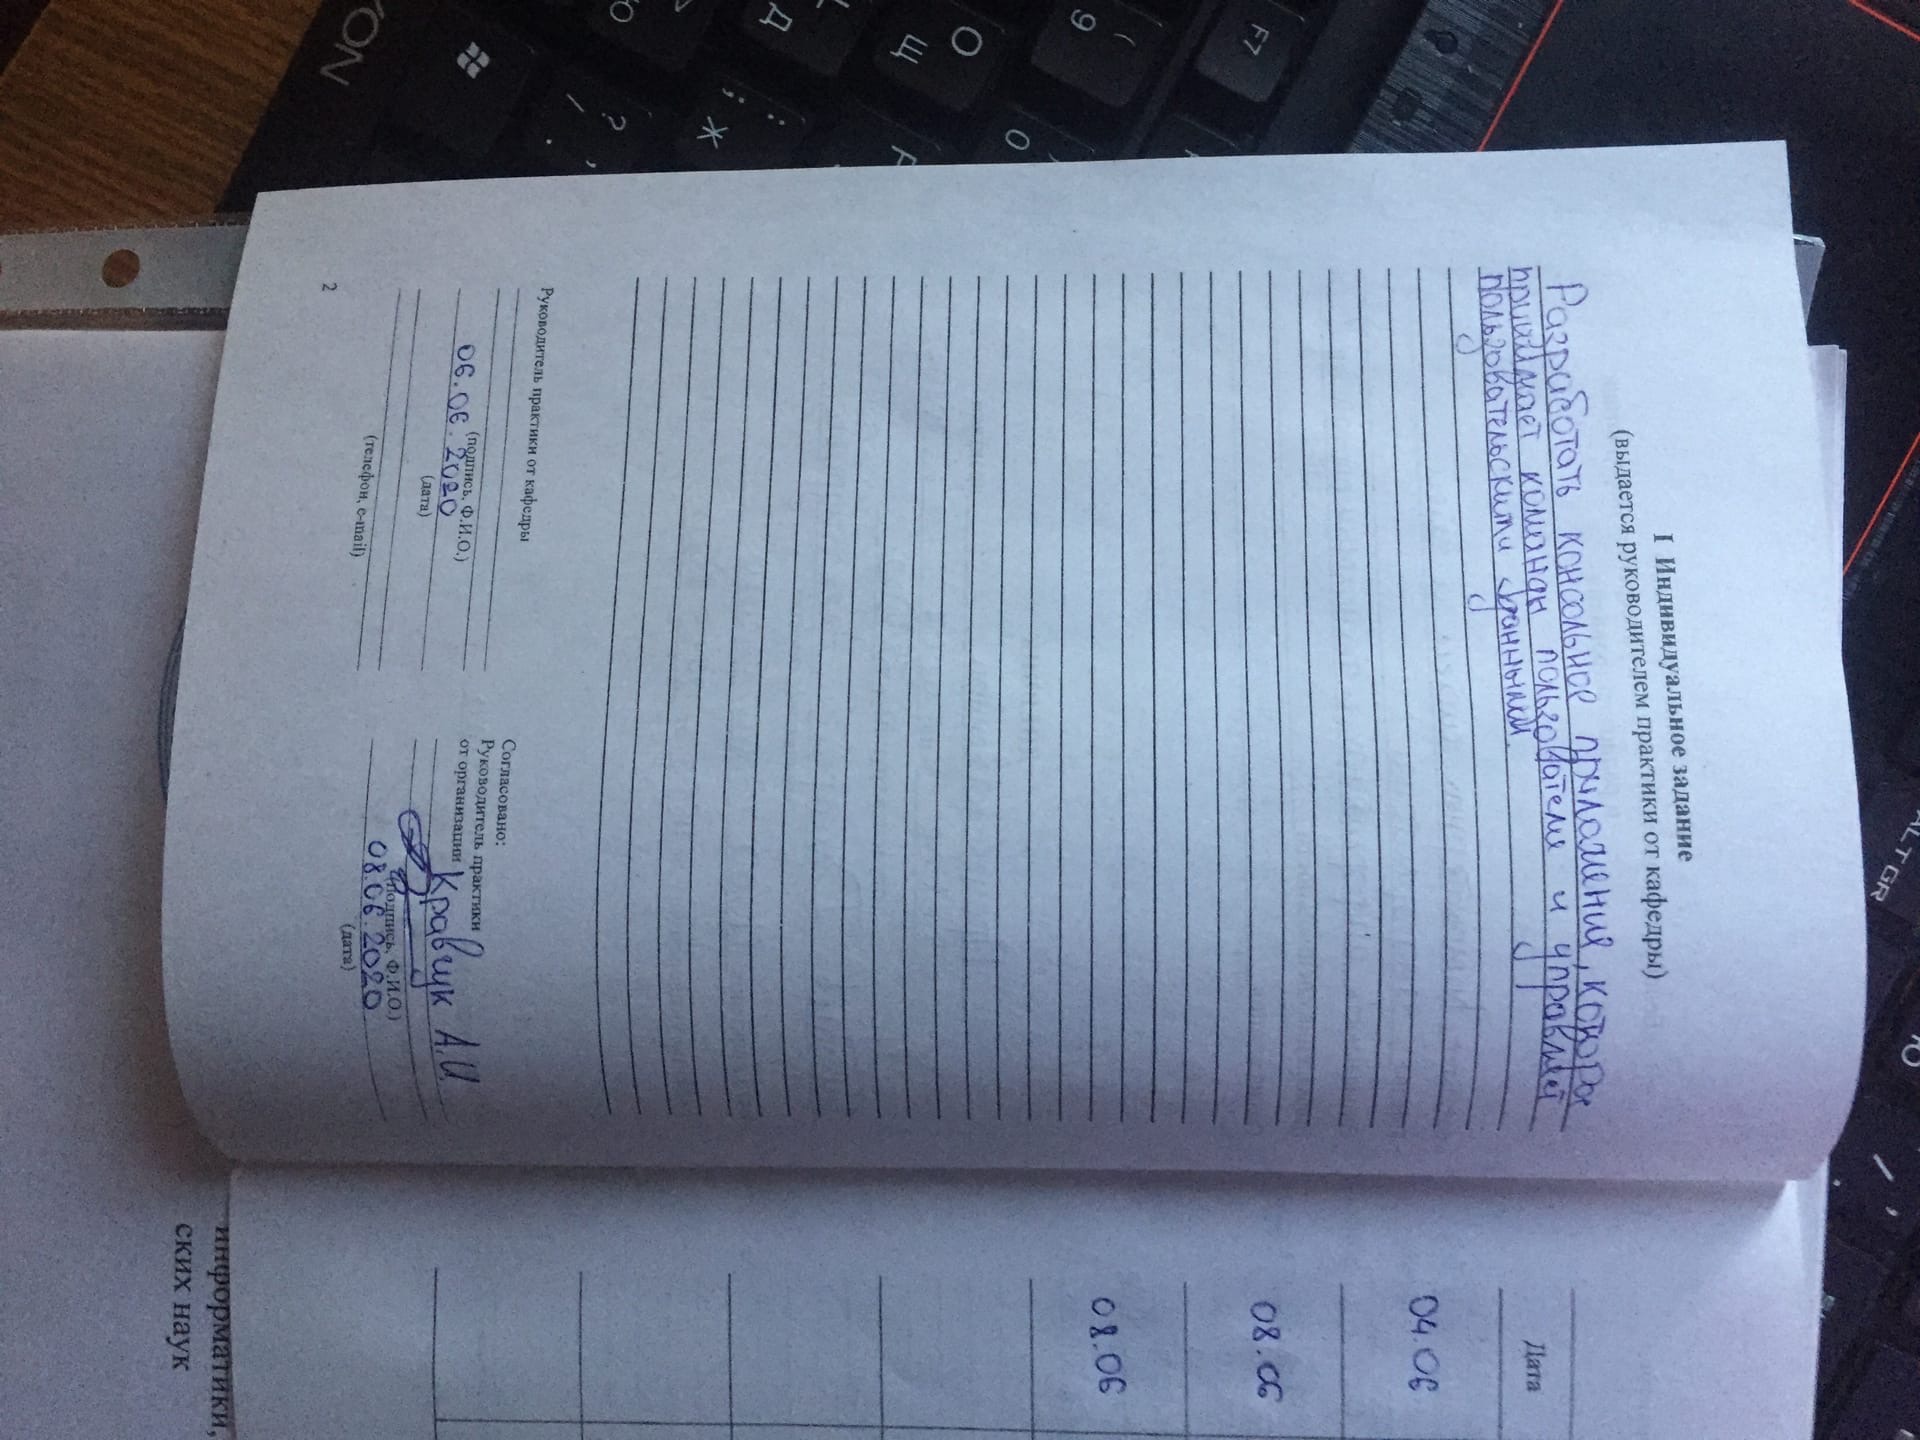 I Индивидуальное задание
(выдается руководителем практики от кафедры)
Разработать консольное приложение, которое
принимает команды пользователя и управляет
пользовательскими данными.
Руководитель практики от кафедры
(подпись, Ф.И.О.)
06.06.2020
(дата)
(телефон, e-mail)
2
Согласовано:
Руководитель практики
от организации
Кравчук А.И.
(подпись, Ф.И.О.)
08.06.2020
(дата)
Дата
04.06
08.06
08.06
информатики,
ских наук
F7
ALT GR